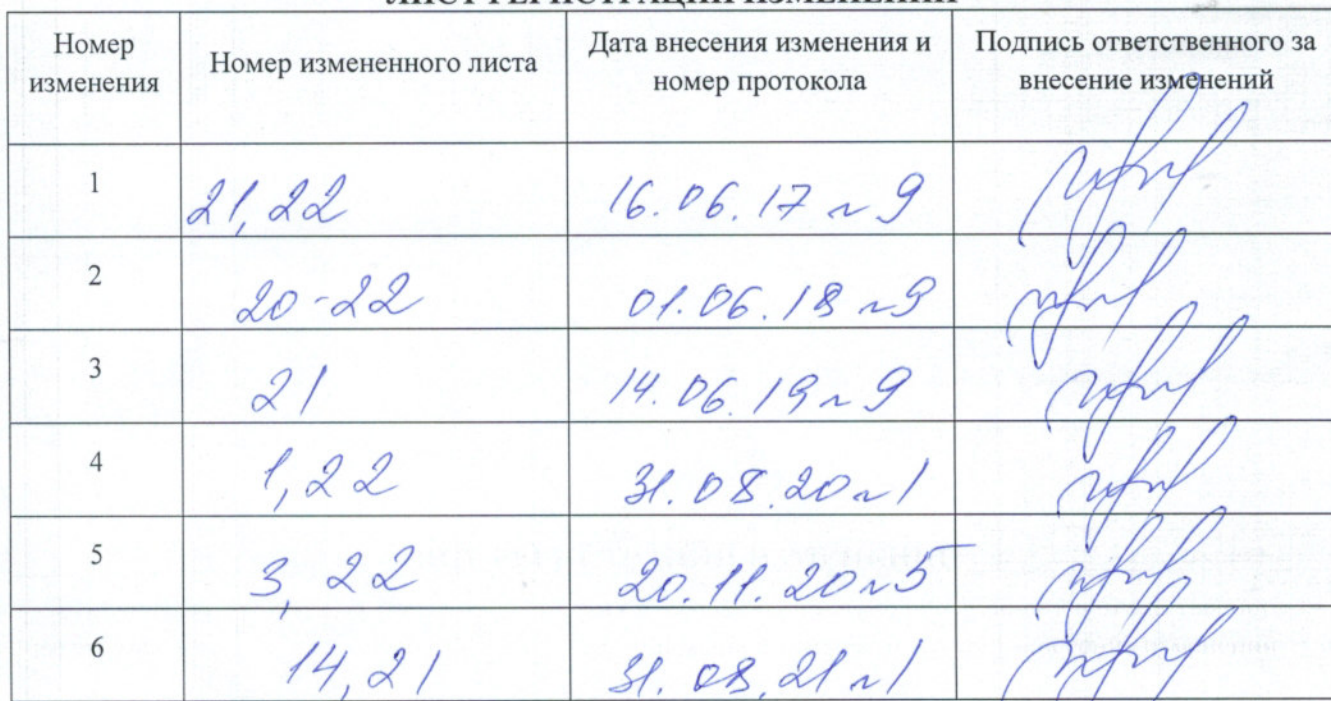 ЛИСТ РЕГИСТРАЦИИ ИЗМЕНЕНИЙ
Номер изменения Номер измененного листа Дата внесения изменения и номер протокола Подпись ответственного за внесение изменений
1 21,22 16.06.17 n 9
2 20-22 01.06.18 n9
3 21 14.06.19 n 9
4 1,22 31.08.20 n 1
5 3, 22 20.11.20 n5
6 14,21 31.08.21 n1